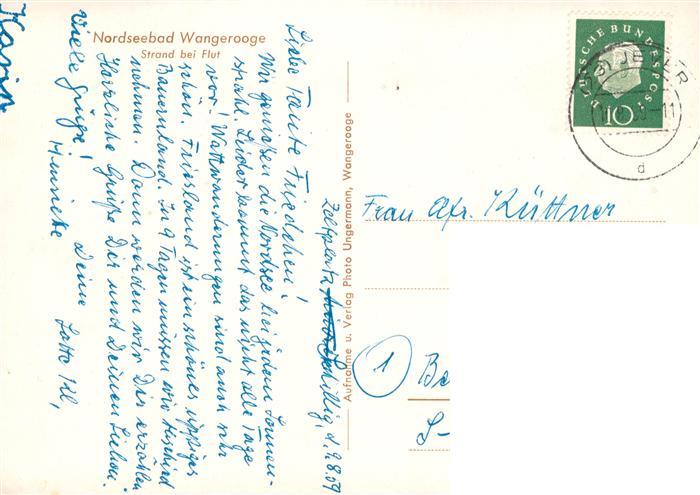 Nordseebad Wangerooge
Strand bei Flut
Zeltplatz Schillig, d. 9.8.59
Liebe Tante Friedchen!
Wir genoßen die Nordsee bei jedem Sonnen-
strahl. Leider kommt das nicht alle Tage
vor! Wattwanderungen sind auch sehr
schön. Friesland ist ein schönes üppiges
Bauernland. In 9 Tagen müssen wir Abschied
nehmen. Dann werden wir Dir erzählen
Herzliche Grüße Dir und Deinen Lieben.
Deine
Viele Grüße!
Karin
Aufnahme u. Verlag Photo Ungermann, Wangerooge
DEUTSCHE BUNDESPOST
10
JEVER
-11
d
Frau Küttner
1
Be